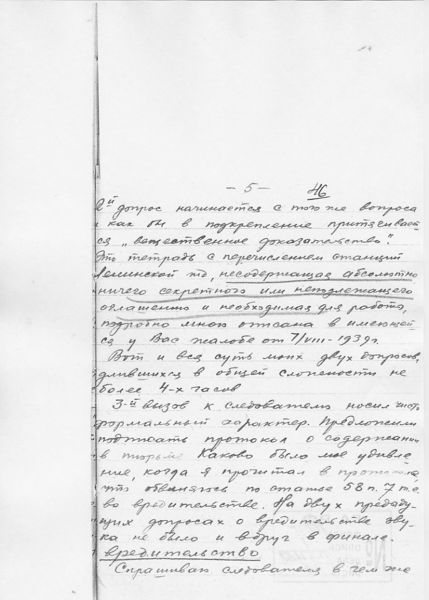 – 5 –   46
2й допрос начинается с того же вопроса
и как бы в подкрепление притягивает
ся „вещественное доказательство".
Это тетрадь с перечислением станций
Ленинской жд, несодержащая абсолютно
ничего секретного или неподлежащего
оглашению и необходимая для работа,
подробно мною описана в имеющей
ся у Вас жалобе от 7/VIII - 1939г.
Вот и вся суть моих двух допросов,
длившихся в общей сложности не
более 4-х часов
3-й вызов к следователю носил чисто
формальный характер. Предложили
подписать протокол о содержании
в тюрьме Каково было мое удивле
ние, когда я прочитал в протоколе,
что обвиняюсь по статье 58 п. 7 т.е.
во вредительстве. На двух предыду
щих допросах о вредительстве зву
ка не было и вдруг в финале.
вредительство
Спрашиваю следователя в чем же